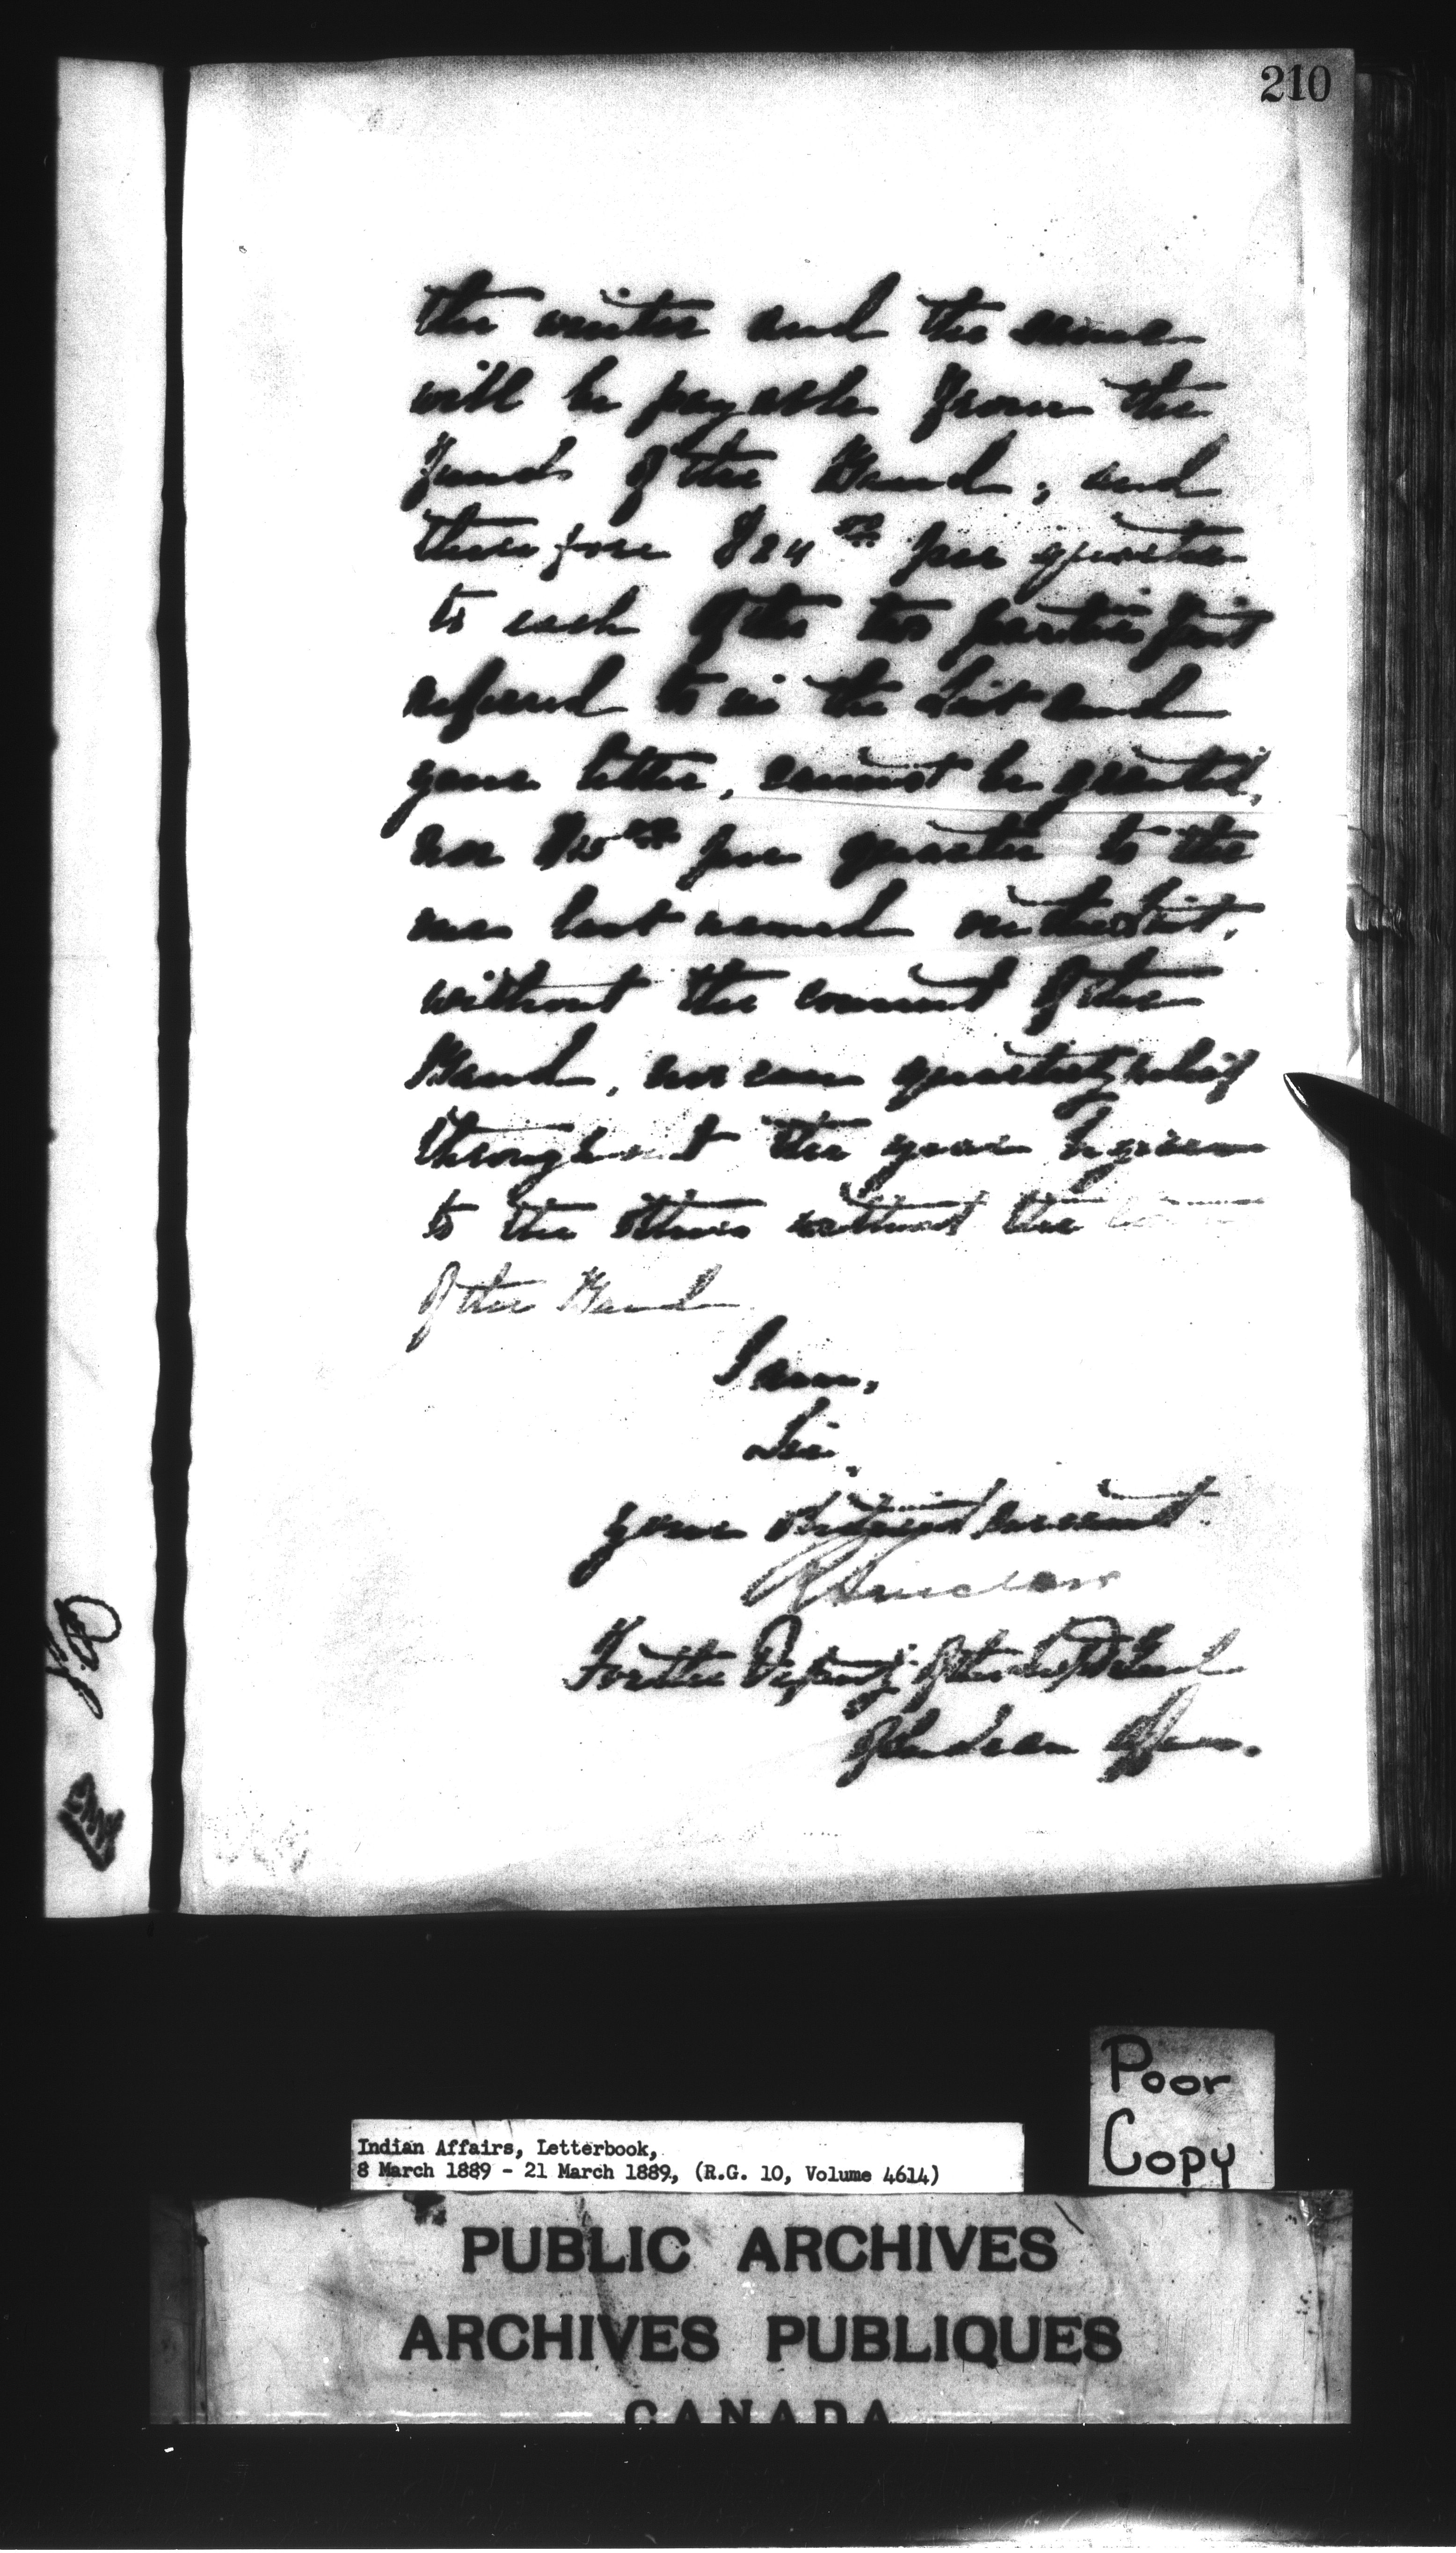 210
the winter and the same
will be payable from the
funds of the Band, and
therefore $24 00 per quarter
to each of the two parties first
referred to in the list and
your letter, cannot be granted,
nor $20 00 per quarter to the
one last named on the list,
without the consent of the
Band, nor can quarterly relief
throughout the year be given
to the others without the
of the Band
I am,
Sir,
your obedient servant
R Sinclair
For the Deputy of the Supt Genl
of Indian Affairs.
Poor
Copy
Indian Affairs, Letterbook,
8 March 1889 - 21 March 1889, (R.G. 10, Volume 4614)
PUBLIC ARCHIVES
ARCHIVES PUBLIQUES
CANADA